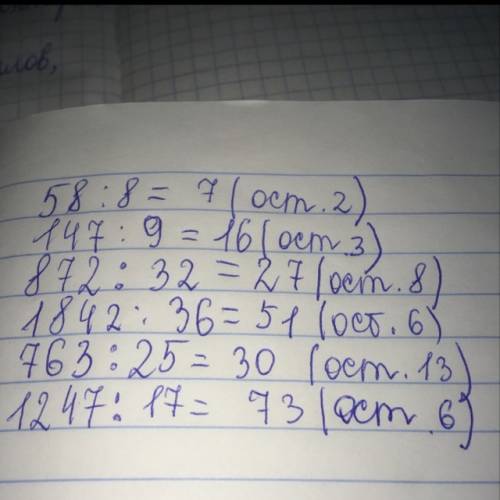 58 : 8 = 7 (ост. 2)
147 : 9 = 16 (ост. 3)
872 : 32 = 27 (ост. 8)
1842 : 36 = 51 (ост. 6)
763 : 25 = 30 (ост. 13)
1247 : 17 = 73 (ост. 6)